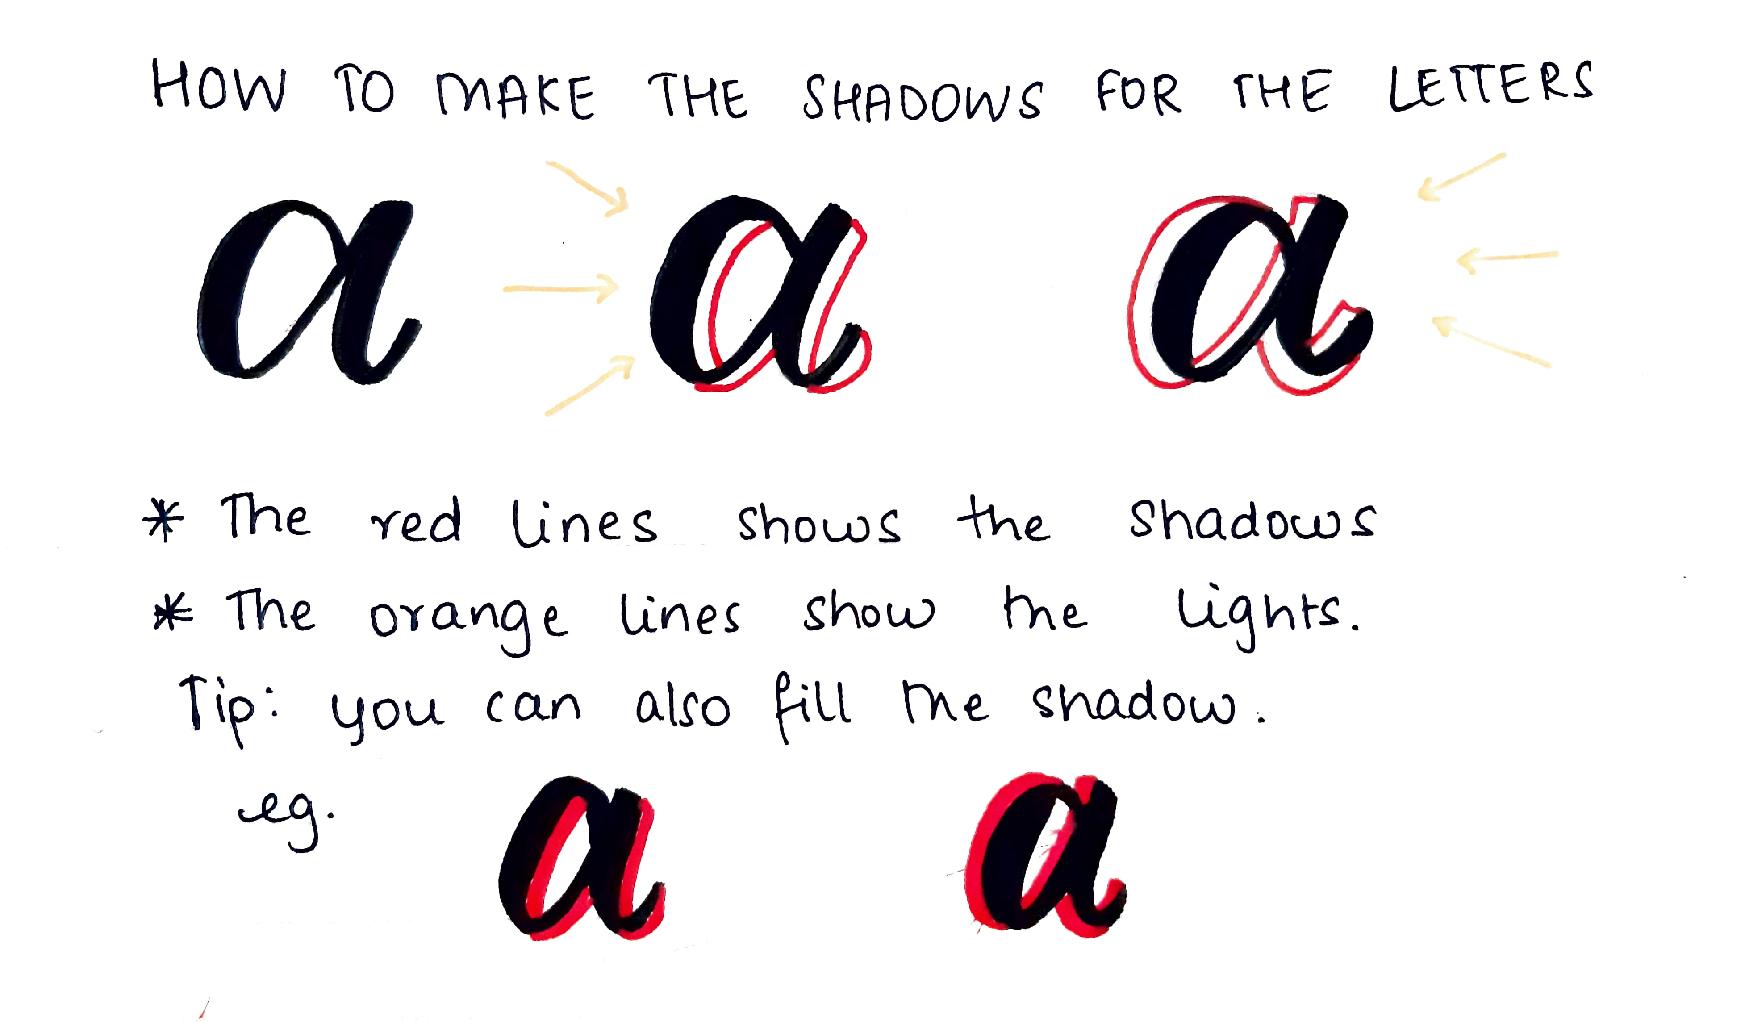 HOW TO MAKE THE SHADOWS FOR THE LETTERS
a a a
* The red lines shows the shadows
* The orange lines show the lights.
Tip: you can also fill the shadow.
eg. a a